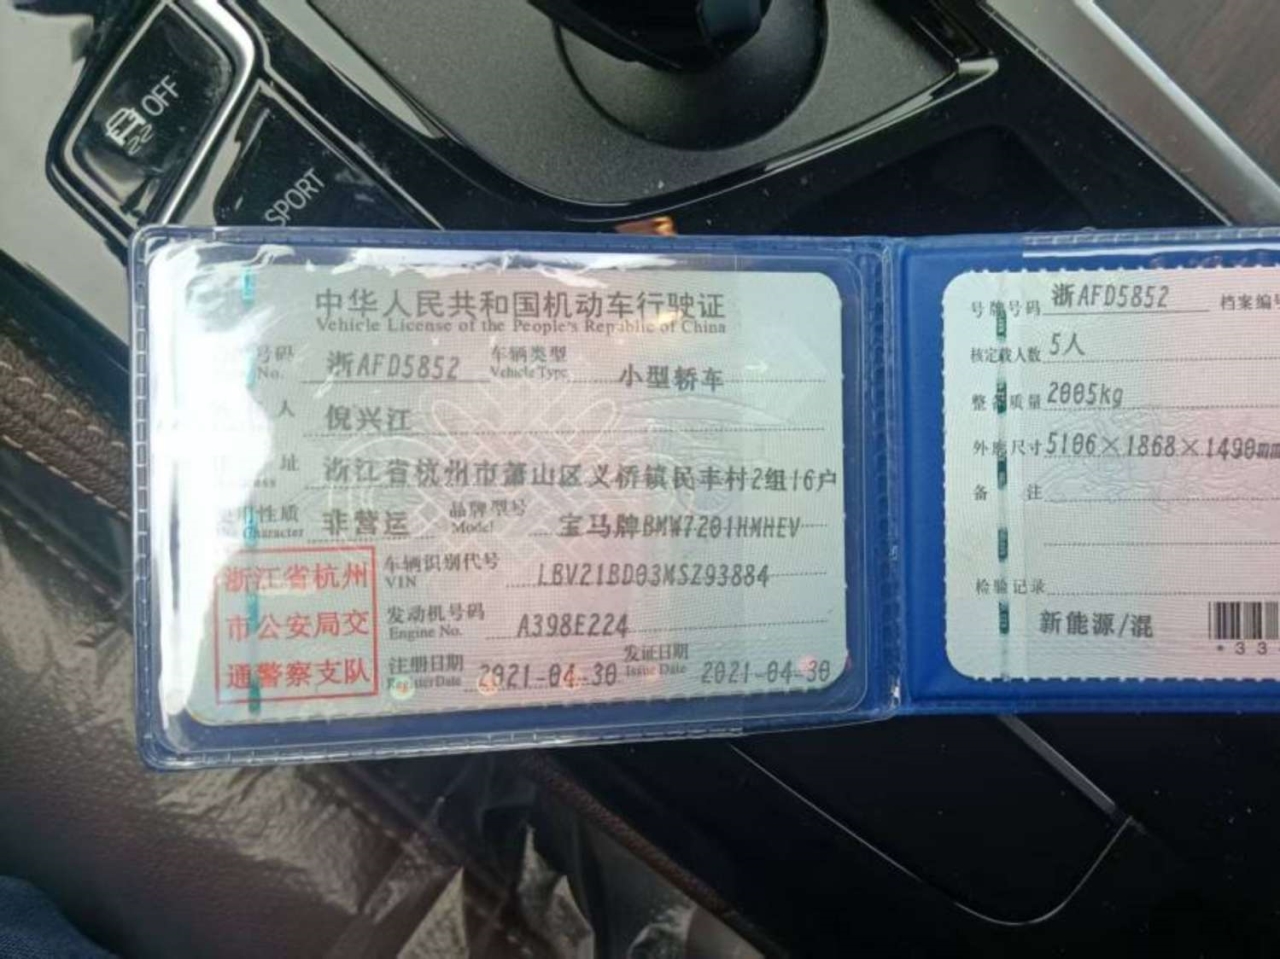 OFF
SPORT
中华人民共和国机动车行驶证
Vehicle License of the People's Republic of China
号码 浙AFD5852 车辆类型 小型轿车
No. Vehicle Type
人 倪兴江
址 浙江省杭州市萧山区义桥镇民丰村2组16户
用性质 非营运 品牌型号 宝马牌BMW7201HMHEV
Character Model
浙江省杭州
市公安局交
通警察支队
车辆识别代号 LBV21BD03MSZ93884
VIN
发动机号码 A398E224
Engine No.
注册日期 2021-04-30 发证日期 2021-04-30
Register Date Issue Date
号牌号码 浙AFD5852 档案编号
核定载人数 5人
整备质量 2005kg
外廓尺寸 5106×1868×1490mm
备 注
检验记录
新能源/混
*33